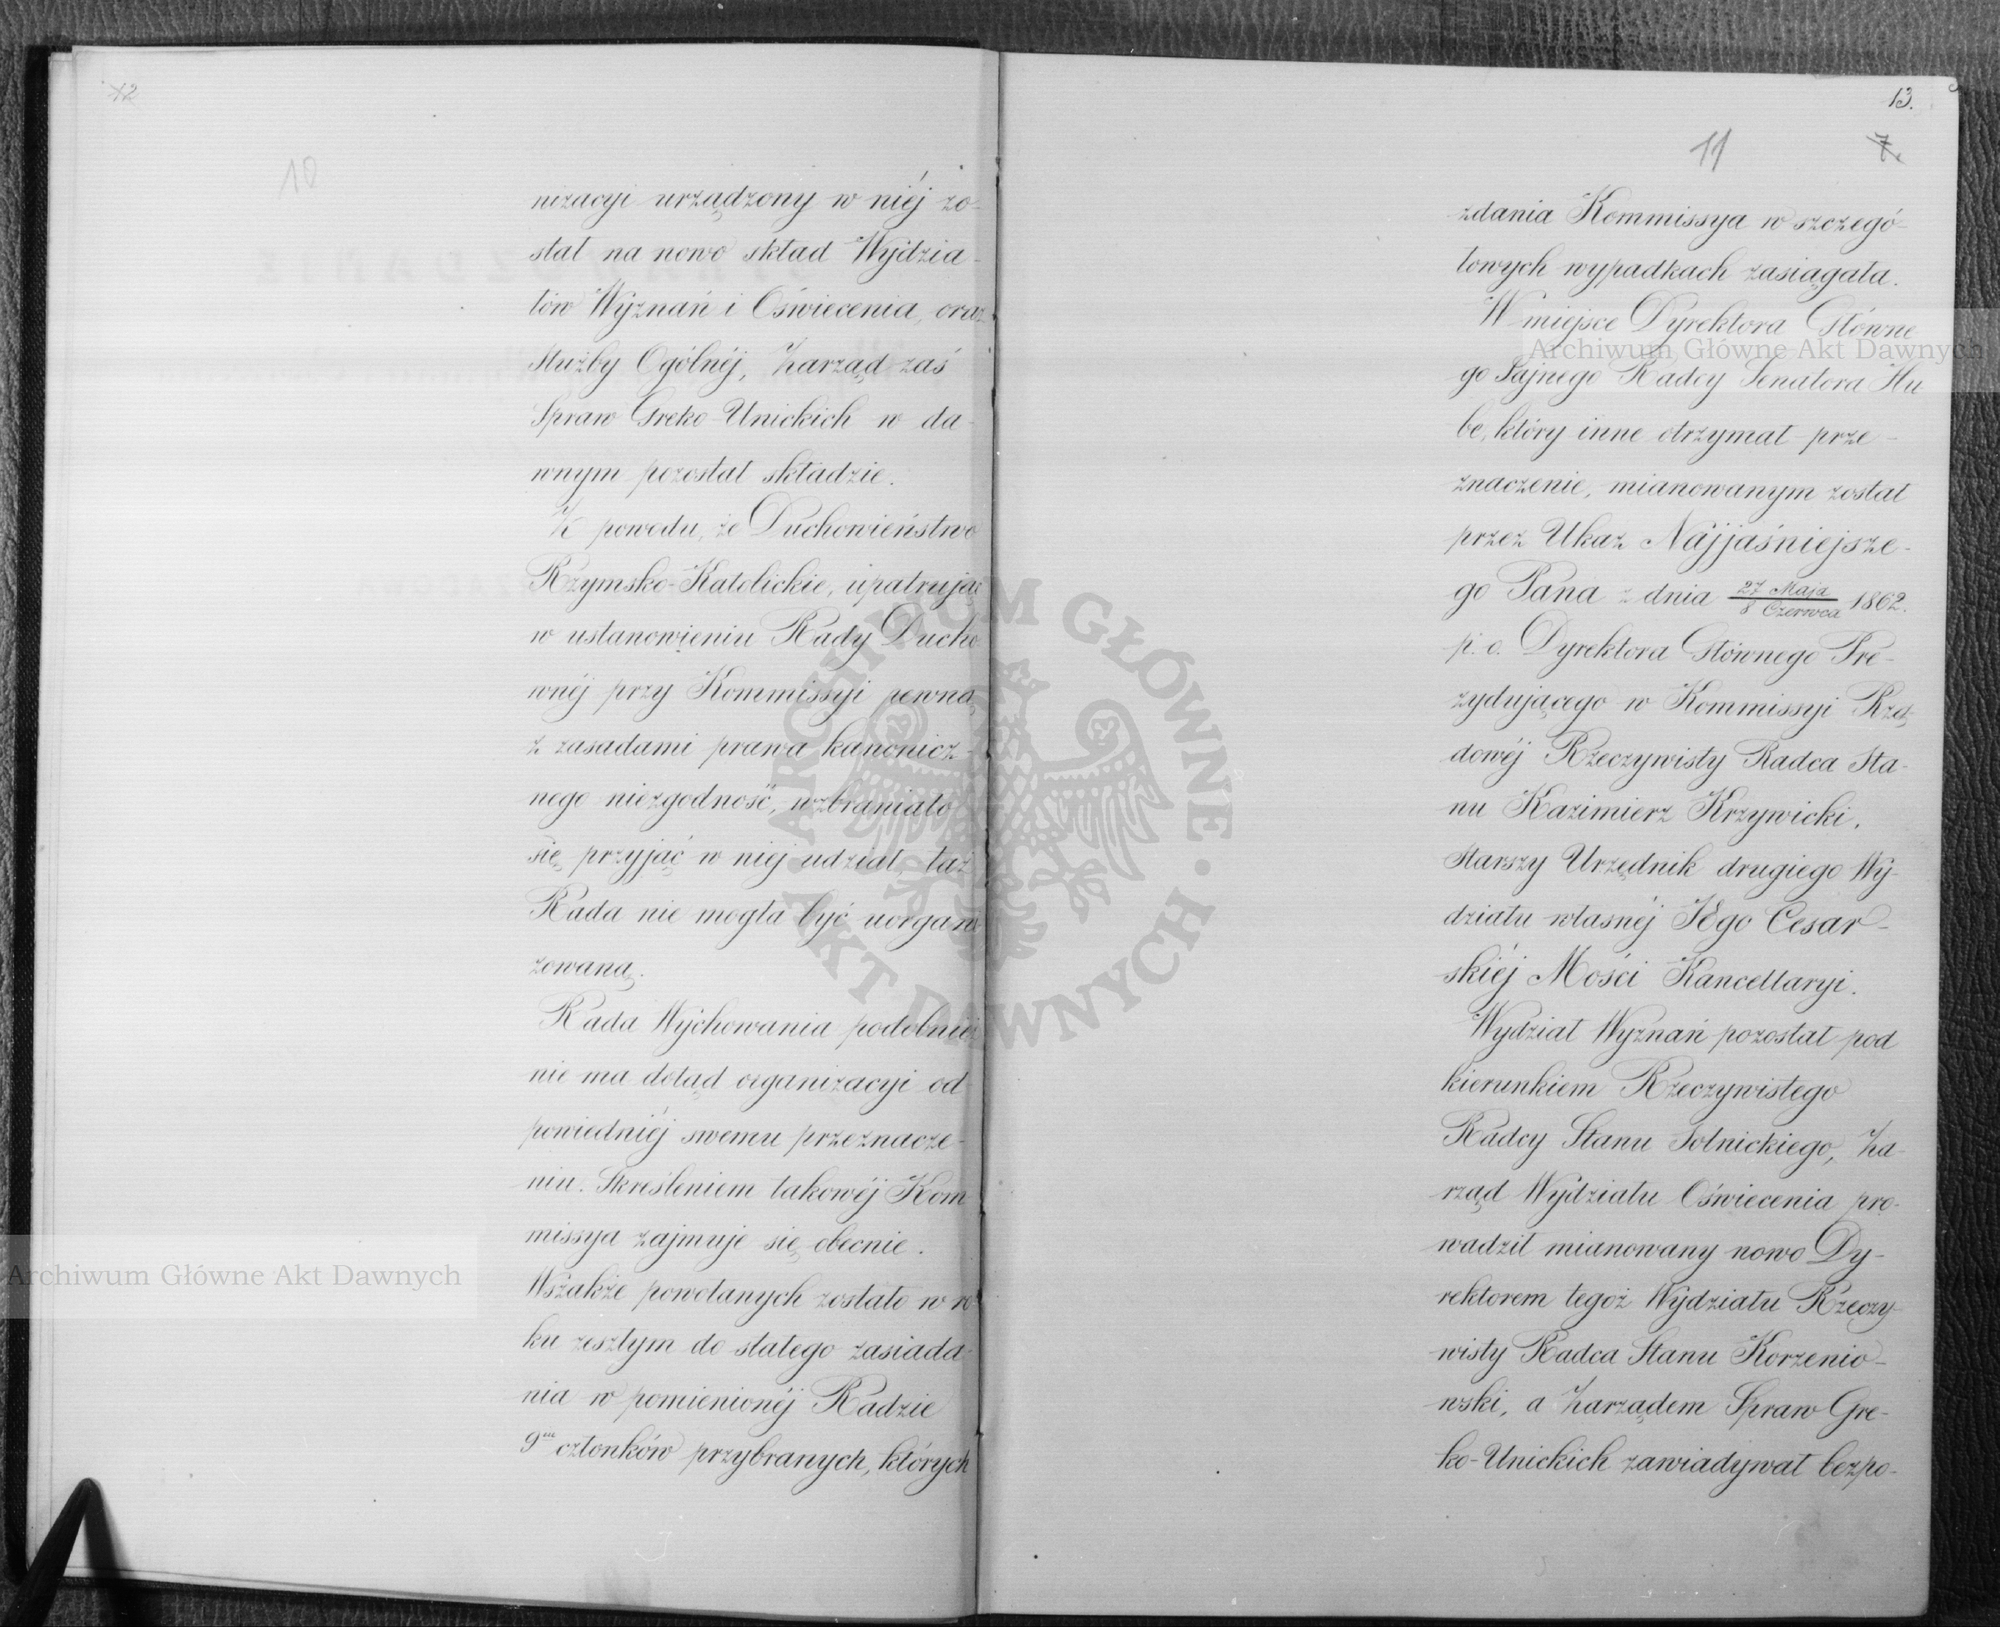 12
10
nizacyi urządzony w niéj zo-
stał na nowo skład Wydzia-
łów Wyznań i Oświecenia, oraz
Służby Ogólnéj, Zarząd zaś
Spraw Greko-Unickich w da-
wnym pozostał składzie.
Z powodu, że Duchowieństwo
Rzymsko-Katolickie, upatrując
w ustanowieniu Rady Ducho
wnéj przy Kommissyi pewną
z zasadami prawa kanonicz-
nego niezgodność, wzbraniało
się przyjąć w niej udział, taż
Rada nie mogła być uorgani
zowaną.
Rada Wychowania podobnież
nie ma dotąd organizacyi od
powiedniéj swemu przeznacze-
niu. Skreśleniem takowéj Kom
missya zajmuje się obecnie.
Wszakże powołanych zostało w ro
ku zeszłym do stałego zasiada-
nia w pomienionéj Radzie
9ciu członków przybranych, których
13.
11
7.
zdania Kommissya w szczegó-
łowych wypadkach zasiągała.
W miejsce Dyrektora Główne
go Tajnego Radcy Senatora Hu
be, który inne otrzymał prze-
znaczenie, mianowanym został
przez Ukaz Najjaśniejsze-
go Pana z dnia 27 Maja / 8 Czerwca 1862.
p. o. Dyrektora Głównego Pre-
zydującego w Kommissyi Rzą-
dowéj Rzeczywisty Radca Sta-
nu Kazimierz Krzywicki,
Starszy Urzędnik drugiego Wy-
działu własnéj Jego Cesar-
skiéj Mości Kancellaryi.
Wydział Wyznań pozostał pod
kierunkiem Rzeczywistego
Radcy Stanu Solnickiego, Za-
rząd Wydziału Oświecenia pro-
wadził mianowany nowo Dy-
rektorem tegoż Wydziału Rzeczy-
wisty Radca Stanu Korzenio-
wski, a Zarządem Spraw Gre-
ko-Unickich zawiadywał bezpo-
Archiwum Główne Akt Dawnych
Archiwum Główne Akt Dawnych
ARCHIWUM GŁÓWNE · AKT DAWNYCH ·